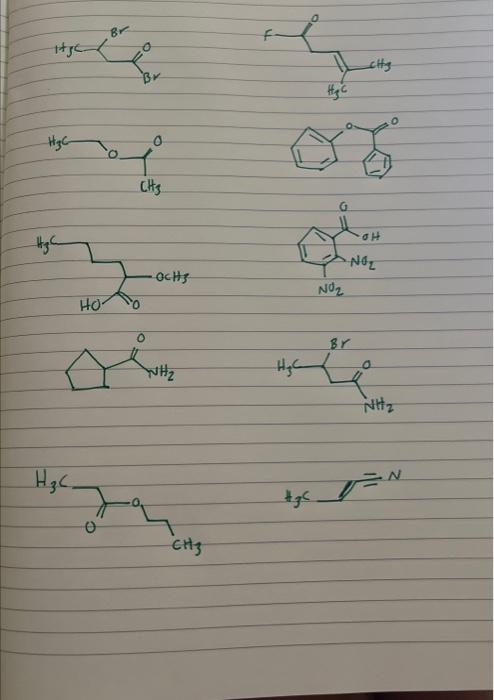 Br
H3C
O
Br
F
O
CH3
H3C
H3C
O
O
CH3
O
O
H3C
OCH3
HO
O
O
OH
NO2
NO2
O
NH2
Br
H3C
O
NH2
H3C
O
O
CH3
H3C
N